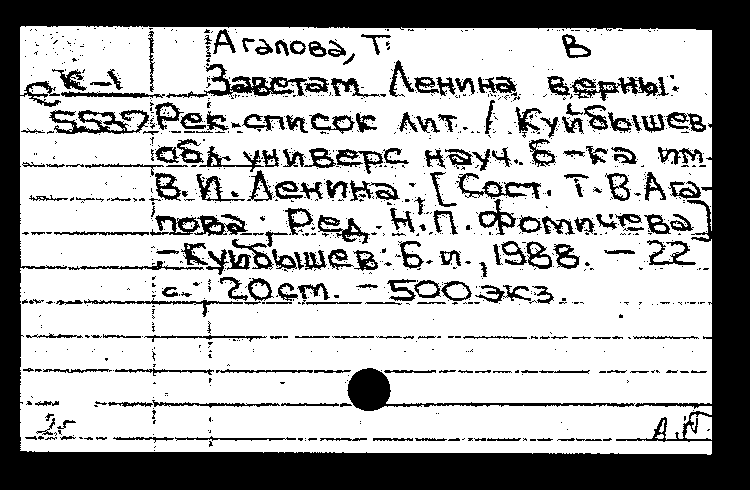 Агапова, Т. В
е К-1 Заветам Ленина верны:
5537 Рек. список лит. / Куйбышев.
обл. универс науч. б-ка им.
В. И. Ленина; [Сост. Т. В. Ага-
пова; Ред. Н. П. Фомичева]
.-Куйбышев: Б. и., 1988. - 22
с.; 20 см. - 500 экз.
2г